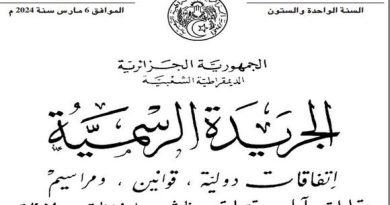 السنة الواحدة والستون
الموافق 6 مارس سنة 2024 م
الجمهورية الجزائرية
الديمقراطية الشعبية
الجريدة الرسمية
إتفاقات دولية ، قوانين ، ومراسيم